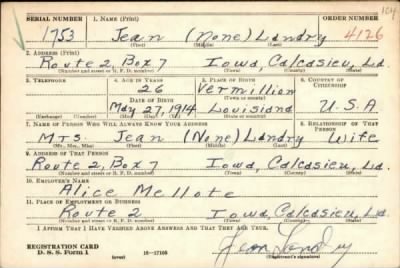 104
SERIAL NUMBER 1. NAME (Print) ORDER NUMBER
1753 Jean (None) Landry 4126
(First) (Middle) (Last)
2. ADDRESS (Print)
Route 2, Box 7 Iowa, Calcasieu, La.
(Number and street or R. F. D. number) (Town) (County) (State)
3. TELEPHONE 4. AGE IN YEARS 5. PLACE OF BIRTH 6. COUNTRY OF CITIZENSHIP
26 Vermillion
DATE OF BIRTH (Town or county)
May 27, 1914 Louisiana U.S.A
(Mo.) (Day) (Yr.) (State or country)
7. NAME OF PERSON WHO WILL ALWAYS KNOW YOUR ADDRESS 8. RELATIONSHIP OF THAT PERSON
Mrs. Jean (None) Landry Wife
(Mr., Mrs., Miss) (First) (Middle) (Last)
9. ADDRESS OF THAT PERSON
Route 2, Box 7 Iowa, Calcasieu, La.
(Number and street or R. F. D. number) (Town) (County) (State)
10. EMPLOYER'S NAME
Alice Mellote
11. PLACE OF EMPLOYMENT OR BUSINESS
Route 2 Iowa, Calcasieu, La.
(Number and street or R. F. D. number) (Town) (County) (State)
I AFFIRM THAT I HAVE VERIFIED ABOVE ANSWERS AND THAT THEY ARE TRUE.
REGISTRATION CARD
D. S. S. Form 1 (over) 16—17105 Jean Landry
(Registrant's signature)